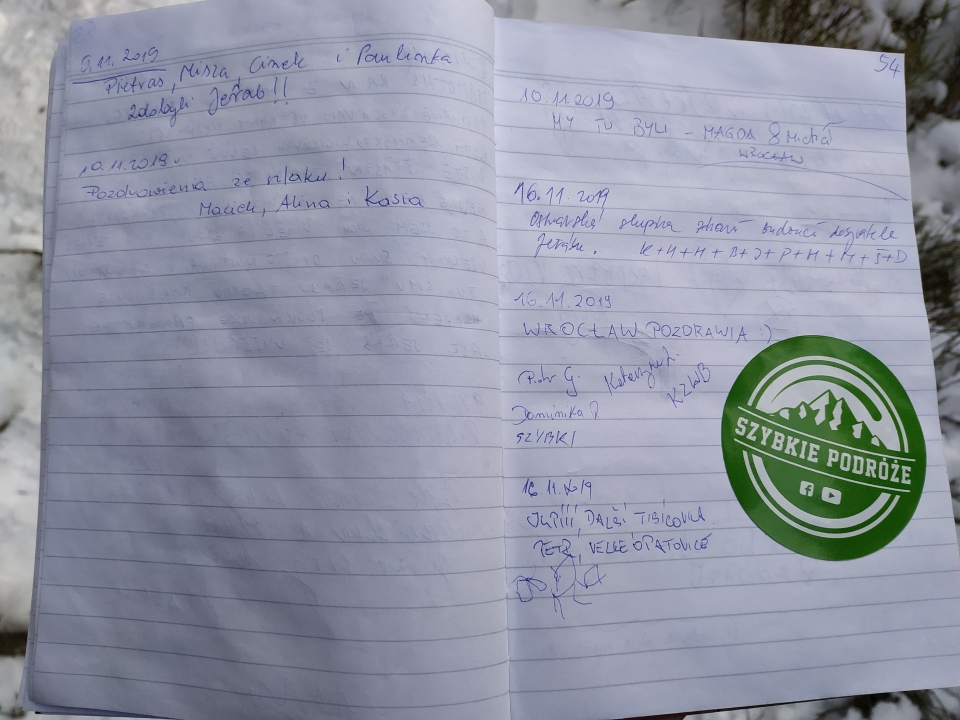 9.11.2019
Pietraś, Misza, Cinek i Paulinka
zdobyli Jeřab!!
10.11.2019
Pozdrowienia ze szlaku!
Maciek, Alina i Kasia
54
10.11.2019
MY TU BYLI - MAGDA & Michał
WROCŁAW
16.11.2019
Ostravská
Jeřábu. K+H+H+B+J+P+H+M+S+D
16.11.2019
WROCŁAW POZDRAWIA :)
Piotr G. Katarzyna
KZWB
Dominika
SZYBKI
SZYBKIE PODRÓŻE
16.11.2019
JUPÍÍÍ, DALŠÍ TISÍCOVKA.
PETR, VELKÉ OPATOVICE